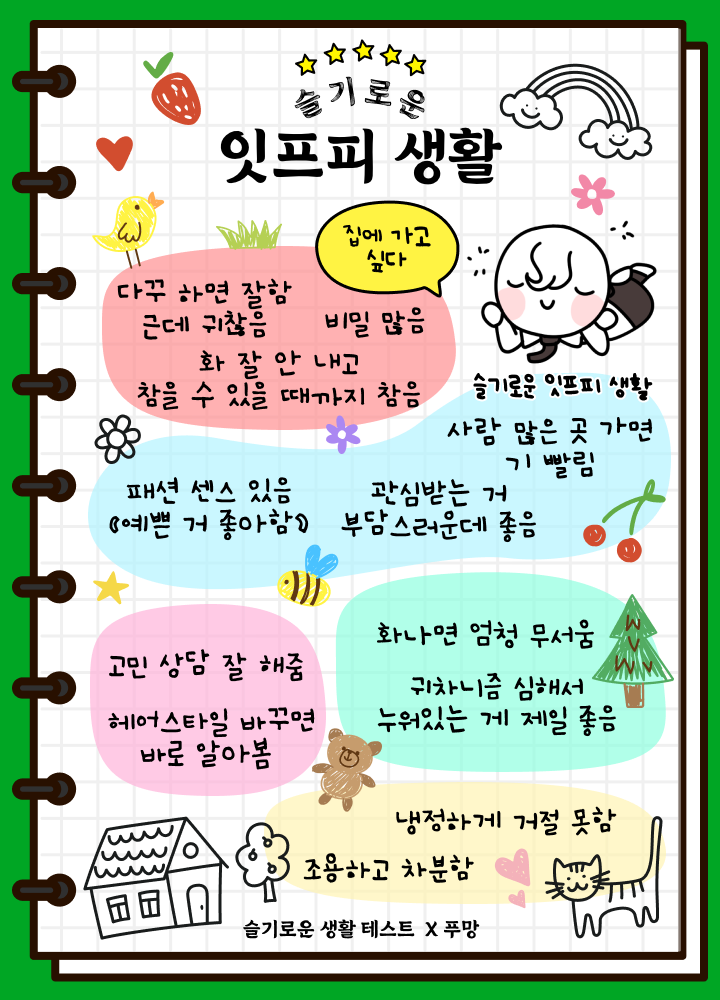 슬기로운
잇프피 생활
집에 가고
싶다
다꾸 하면 잘함
근데 귀찮음
비밀 많음
화 잘 안 내고
참을 수 있을 때까지 참음
슬기로운 잇프피 생활
사람 많은 곳 가면
기 빨림
패션 센스 있음
(예쁜 거 좋아함)
관심받는 거
부담스러운데 좋음
화나면 엄청 무서움
고민 상담 잘 해줌
귀차니즘 심해서
누워있는 게 제일 좋음
헤어스타일 바꾸면
바로 알아봄
냉정하게 거절 못함
조용하고 차분함
슬기로운 생활 테스트 X 푸망